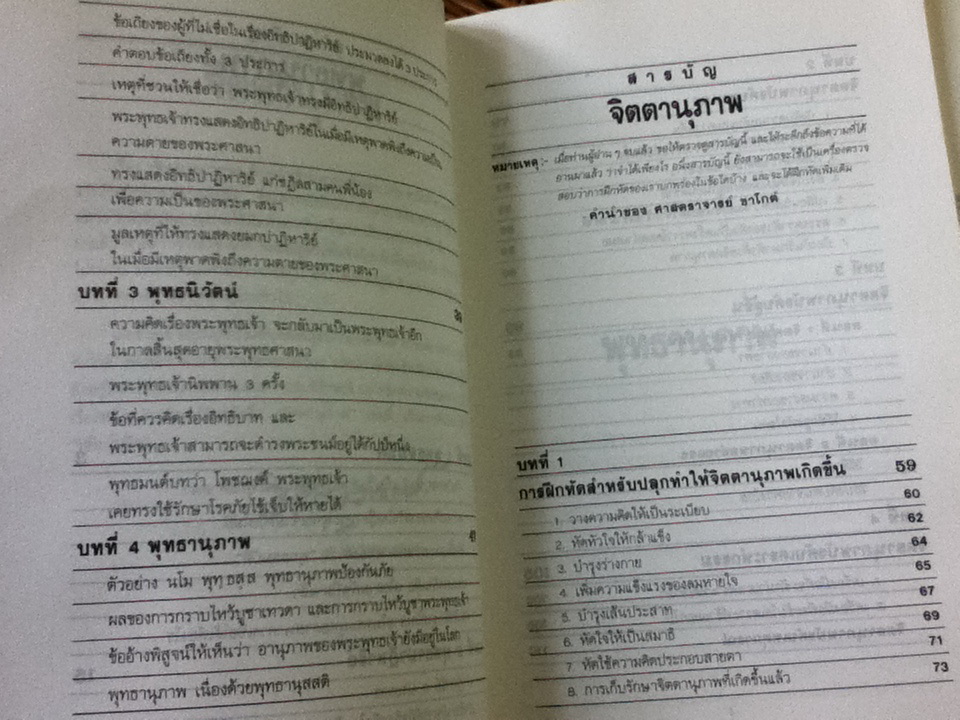 ข้อเถียงของผู้ที่ไม่เชื่อในเรื่องอิทธิปาฏิหาริย์ ประมวลลงได้ 3 ประการ
คำตอบข้อเถียงทั้ง 3 ประการ
เหตุที่ชวนให้เชื่อว่า พระพุทธเจ้าทรงมีอิทธิปาฏิหาริย์
พระพุทธเจ้าทรงแสดงอิทธิปาฏิหาริย์ในเมื่อมีเหตุพาดพิงถึงความเป็น
ความตายของพระศาสนา
ทรงแสดงอิทธิปาฏิหาริย์ แก่ชฎิลสามคนพี่น้อง
เพื่อความเป็นของพระศาสนา
มูลเหตุที่ให้ทรงแสดงยมกปาฏิหาริย์
ในเมื่อมีเหตุพาดพิงถึงความตายของพระศาสนา
บทที่ 3 พุทธนิวัตน์
ความคิดเรื่องพระพุทธเจ้า จะกลับมาเป็นพระพุทธเจ้าอีก
ในกาลสิ้นสุดอายุพระพุทธศาสนา
พระพุทธเจ้านิพพาน 3 ครั้ง
ข้อที่ควรคิดเรื่องอิทธิบาท และ
พระพุทธเจ้าสามารถจะดำรงพระชนม์อยู่ได้กัปป์หนึ่ง
พุทธมนต์บทว่า โพชฌงค์ พระพุทธเจ้า
เคยทรงใช้รักษาโรคภัยไข้เจ็บให้หายได้
บทที่ 4 พุทธานุภาพ
ตัวอย่าง นโม พุทฺธสฺส พุทธานุภาพป้องกันภัย
ผลของการกราบไหว้บูชาเทวดา และการกราบไหว้บูชาพระพุทธเจ้า
ข้ออ้างพิสูจน์ให้เห็นว่า อานุภาพของพระพุทธเจ้ายังมีอยู่ในโลก
พุทธานุภาพ เนื่องด้วยพุทธานุสสติ
สารบัญ
จิตตานุภาพ
หมายเหตุ :- เมื่อท่านผู้อ่าน ๆ จบแล้ว ขอให้ตรวจดูสารบัญนี้ และให้ระลึกถึงข้อความที่ได้
อ่านมาแล้ว ว่าจำได้เพียงไร อนึ่งสารบัญนี้ ยังสามารถจะใช้เป็นเครื่องตรวจ
สอบว่าการฝึกหัดของเราบกพร่องในข้อใดบ้าง และจะได้ฝึกหัดเพิ่มเติม
คำนำของ ศาสตราจารย์ ชาโกต์
บทที่ 1
การฝึกหัดสำหรับปลุกทำให้จิตตานุภาพเกิดขึ้น 59
1. วางความคิดให้เป็นระเบียบ 60
2. หัดหัวใจให้กล้าแข็ง 62
3. บำรุงร่างกาย 64
4. เพิ่มความแข็งแรงของลมหายใจ 65
5. บำรุงเส้นประสาท 67
6. หัดใจให้เป็นสมาธิ 69
7. หัดใช้ความคิดประกอบสายตา 71
8. การเก็บรักษาจิตตานุภาพที่เกิดขึ้นแล้ว 73